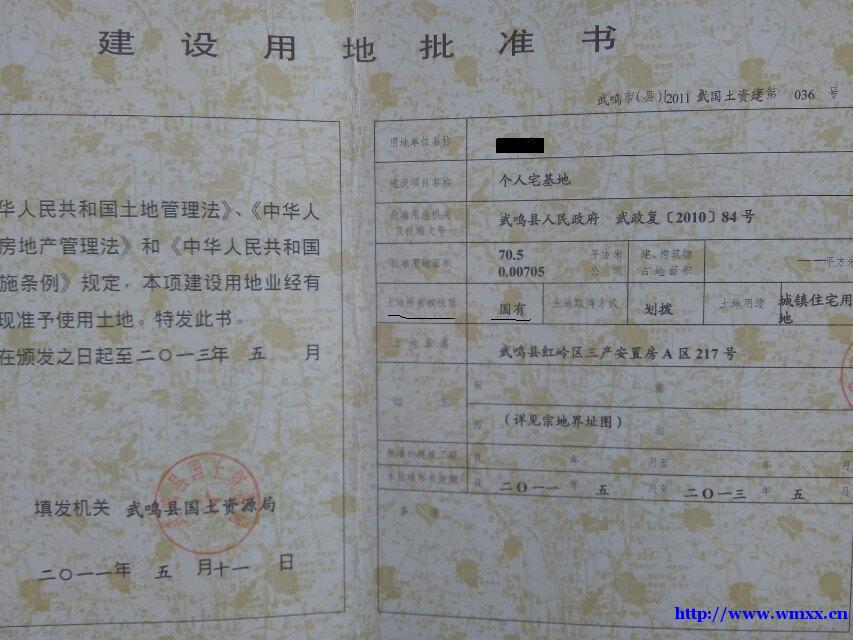 建设用地批准书
武鸣市(县)2011 武国土资建第 036 号
华人民共和国土地管理法》、《中华人
房地产管理法》和《中华人民共和国
施条例》规定，本项建设用地业经有
现准予使用土地。特发此书。
在颁发之日起至二〇一三年 五 月
填发机关 武鸣县国土资源局
二〇一一年 五 月十一 日
用地单位名称
建设项目名称 个人宅基地
批准用地机关及批准文号 武鸣县人民政府 武政复〔2010〕84号
批准用地面积 70.5 平方米 0.00705 公顷 建、构筑物占地面积 —— 平方米
土地所有权性质 国有 土地取得方式 划拨 土地用途 城镇住宅用地
土地座落 武鸣县红岭区三产安置房A区217号
四至 东 南
西 (详见宗地界址图) 北
批准的建设工期 自 年 月至 年 月
本批准书有效期 自 二〇一一 年 五 月至 二〇一三 年 五 月
备注
http://www.wmxx.cn